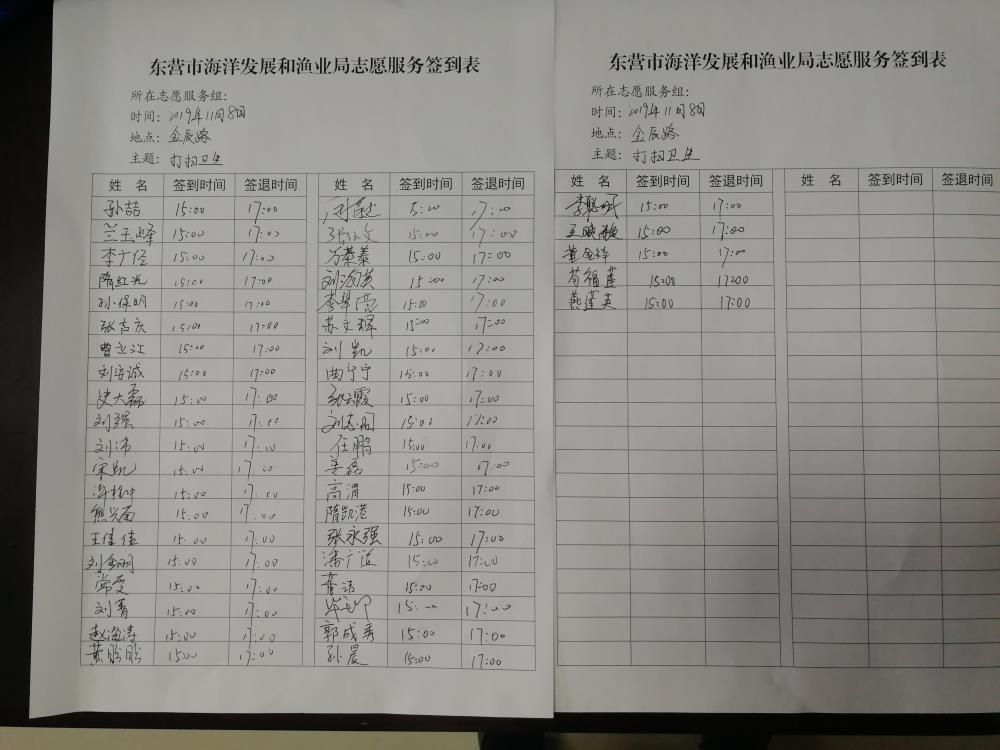 东营市海洋发展和渔业局志愿服务签到表
所在志愿服务组:
时间: 2019年11月8日
地点: 金辰路
主题: 打扫卫生
姓 名 签到时间 签退时间 姓 名 签到时间 签退时间
孙喆 15:00 17:00 15:00 17:00
兰玉峰 15:00 17:00 15:00 17:00
李广经 15:00 17:00 万蓁蓁 15:00 17:00
隋红光 15:00 17:00 刘海英 15:00 17:00
孙保明 15:00 17:00 李翠 15:00 17:00
张吉庆 15:00 17:00 苏文辉 15:00 17:00
曹立江 15:00 17:00 刘凯 15:00 17:00
刘安诚 15:00 17:00 曲宁宁 15:00 17:00
史大磊 15:00 17:00 张云霞 15:00 17:00
刘强 15:00 17:00 刘志刚 15:00 17:00
刘沛 15:00 17:00 任鹏 15:00 17:00
宋凯 15:00 17:00 姜磊 15:00 17:00
15:00 17:00 高渭 15:00 17:00
熊兴南 15:00 17:00 隋凯港 15:00 17:00
王佳佳 15:00 17:00 张永强 15:00 17:00
刘金明 15:00 17:00 潘广 15:00 17:00
常雯 15:00 17:00 董洁 15:00 17:00
刘菁 15:00 17:00 15:00 17:00
赵海涛 15:00 17:00 郭成秀 15:00 17:00
黄盼盼 15:00 17:00 孙晨 15:00 17:00
东营市海洋发展和渔业局志愿服务签到表
所在志愿服务组:
时间: 2019年11月8日
地点: 金辰路
主题: 打扫卫生
姓 名 签到时间 签退时间 姓 名 签到时间 签退时间
李聪 15:00 17:00
王 15:00 17:00
董金祥 15:00 17:00
苟福莲 15:00 17:00
燕莲英 15:00 17:00